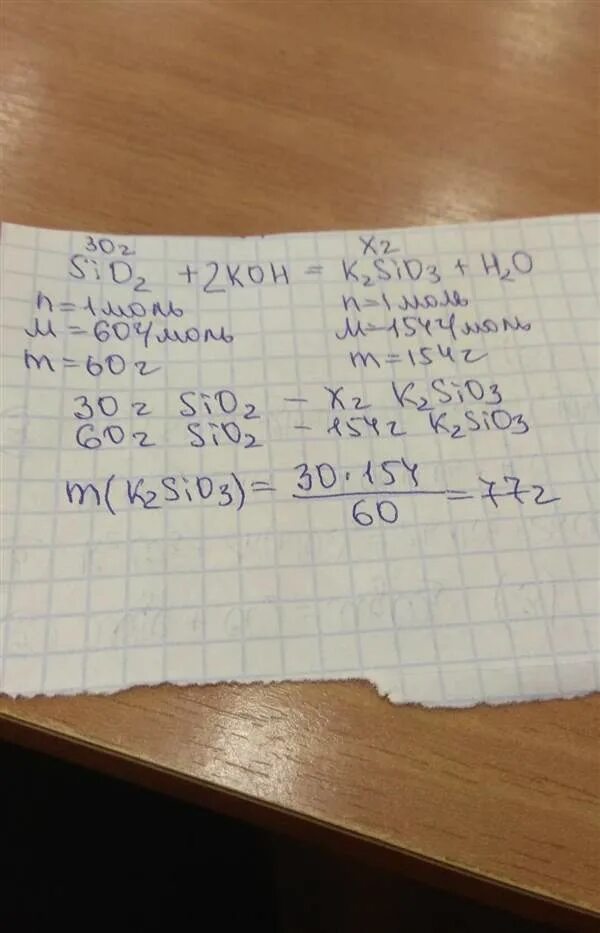 30г xг
SiO2 + 2KOH = K2SiO3 + H2O
n=1моль n=1моль
M=60г/моль M=154г/моль
m=60г m=154г
30г SiO2 – xг K2SiO3
60г SiO2 – 154г K2SiO3
m(K2SiO3) = 30·154/60 = 77г